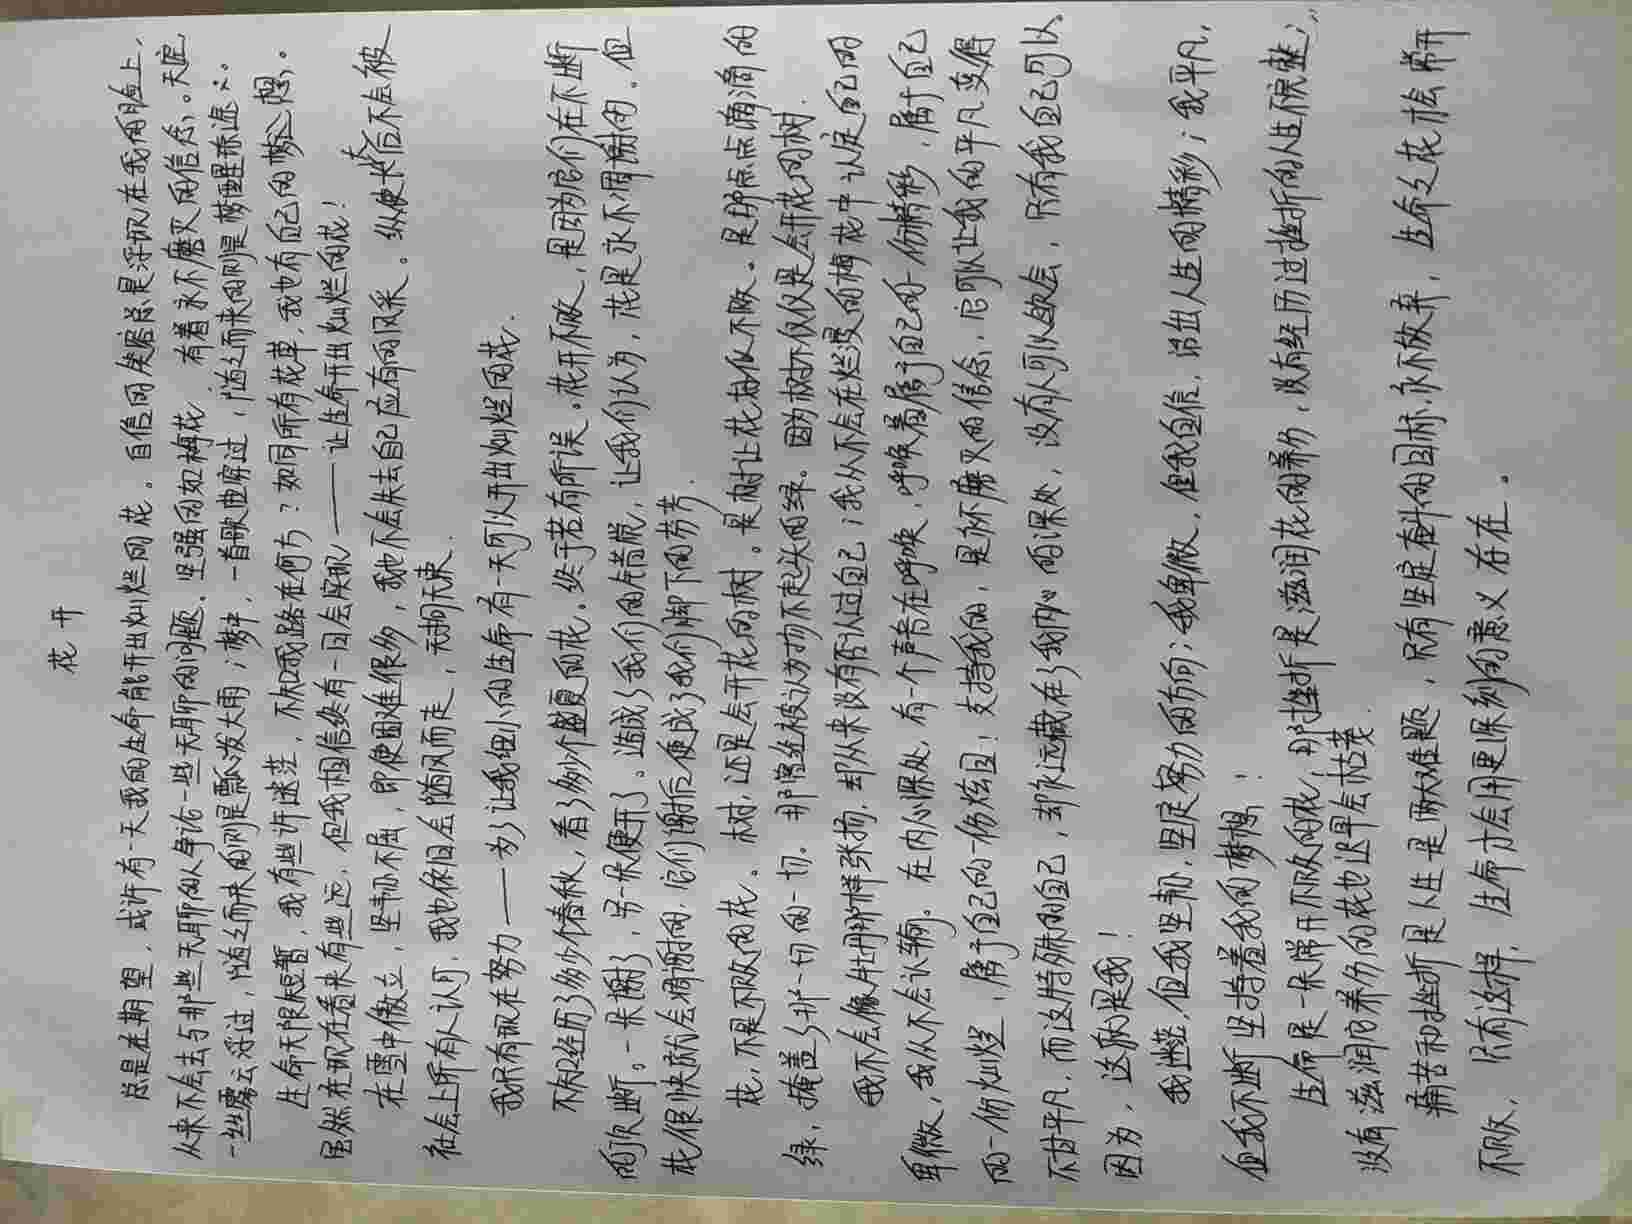 花开
总是在期望，或许有一天我的生命能开出灿烂的花。自信的笑容总是浮现在我的脸上，
从来不会去与那些无聊的人争论一些无聊的问题。坚强的如梅花，有着永不磨灭的信念。天空
一丝雾云浮过，随之而来的则是瓢泼大雨；梦中，一首歌曲穿过，随之而来的则是梦醒
生命无限短暂，我有些许迷茫，不知我路在何方？如同所有花草，我也有自己的梦之想。
虽然在现在看来有些远，但我相信终有一日会实现——让生命开出灿烂的花！
在雪中傲立，坚韧不屈，即使困难很多，我也不会失去自己应有的风采。纵使长大后不会被
社会上所有人认可，我也依旧会随风而走，无拘无束。
我只有现在努力——为了让我细小的生命有一天可以开出灿烂的花。
不知经历了多少个春秋，看了多少个盛夏的花，终于若有所误。花开不败，是因为它们在不断
的顶断。一朵谢了，另一朵便开了。造成了我们的错觉，让我们认为，花是永不凋谢的。但
花很快就会凋谢的，它们谢后便成了我们脚下的芳芳。
花，不是不败的花。树，还是会开花的树。是树让花如此不败。是那点点滴滴的
绿，掩盖了那一切的一切。那曾经被认为扬不起头的绿。因为树不仅仅是会开花的树。
我不会像牡丹那样张扬，却从来没有否认过自己；我从不会在烂漫的梅花中认定自己的
卑微，我从不会认输。在内心深处，有一个声音在呼唤，呼唤着属于自己的一份精彩，属于自己
的一份灿烂，属于自己的一份炫目！支持我的，是那不磨灭的信念，它可以让我的平凡变得
不甘平凡，而这特殊的自己，却永远藏在了我内心的深处，没有人可以领会，只有我自己可以。
因为，这就是我！
我迷茫，但我坚韧，坚定努力的方向；我卑微，但我自信，活出人生的精彩；我平凡，
但我不断坚持着我的梦想！
生命是一朵常开不败的花，那挫折是滋润花的养份，没有经历过挫折的人生不完整；
没有滋润它养份的花也迟早会枯萎。
痛苦和挫折是人生是两大难题，只有坚定奋斗的目标，永不放弃，生命之花才会常开
不败，只有这样，生命才会用更深刻的意义存在。